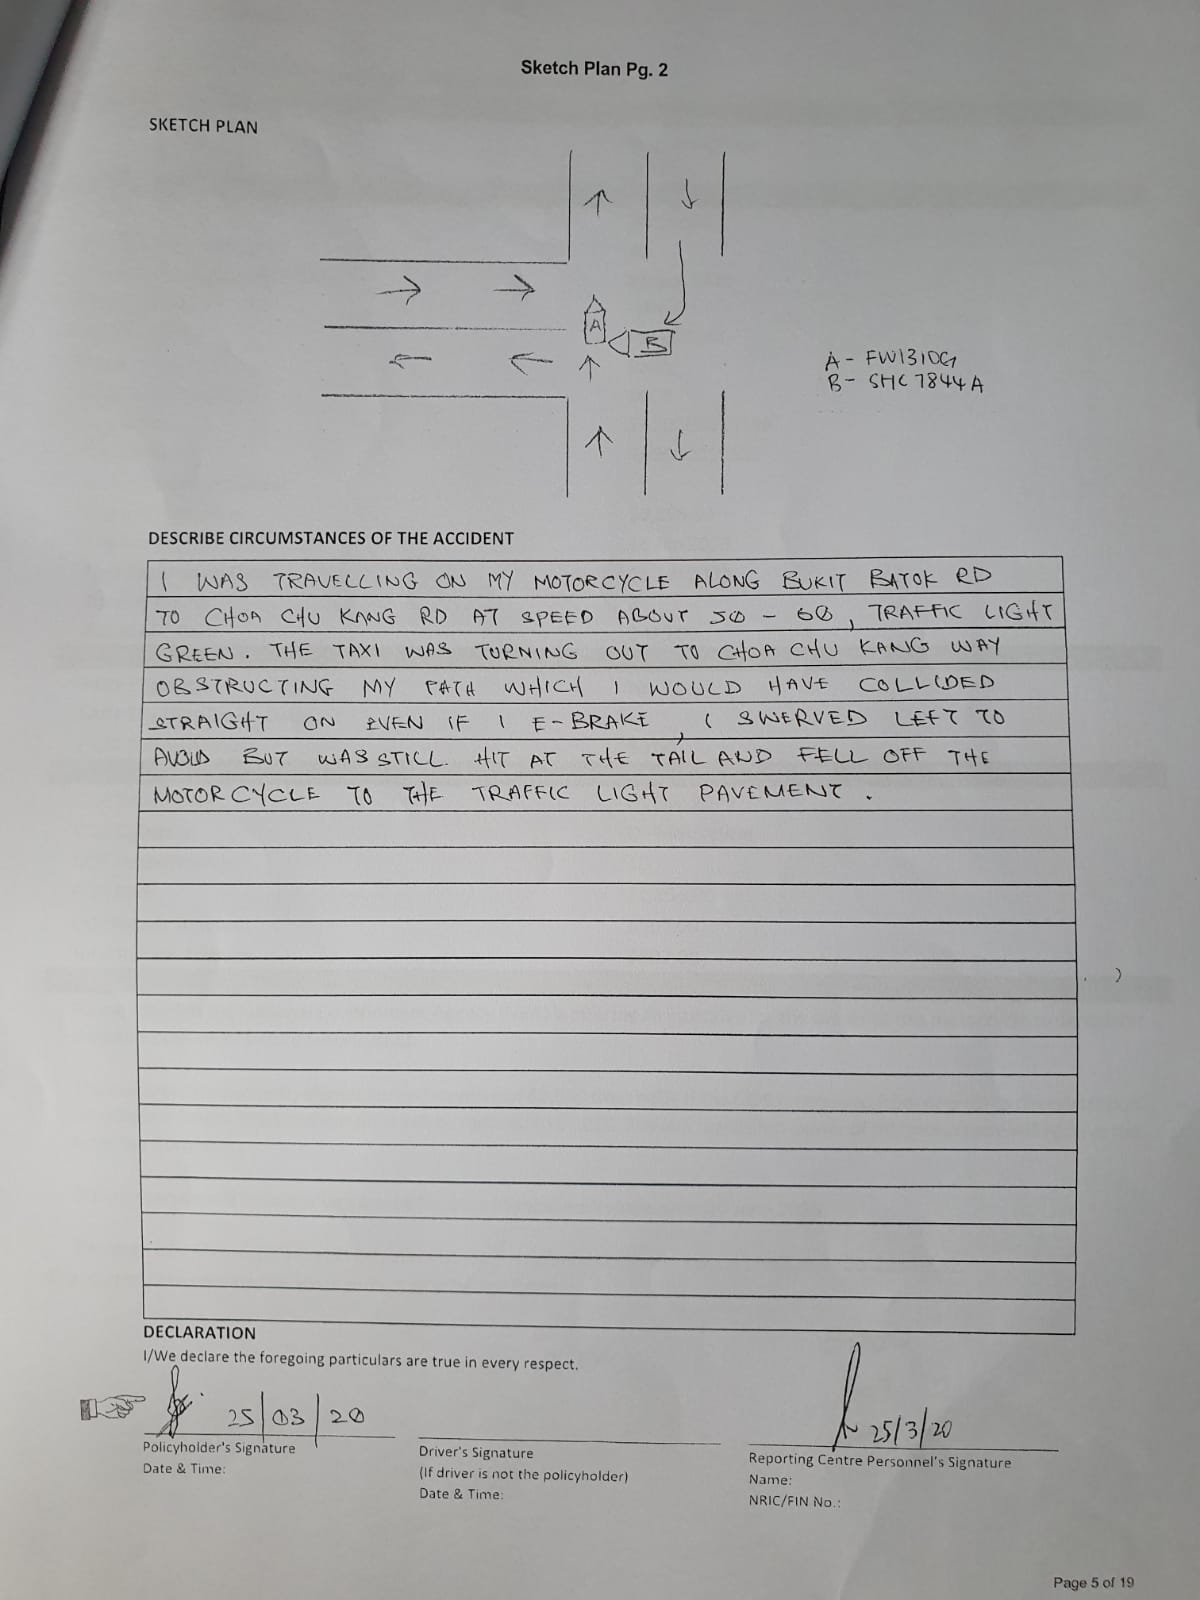 Sketch Plan Pg. 2
SKETCH PLAN
A
B
A - FW1310G
B - SHC 7844A
DESCRIBE CIRCUMSTANCES OF THE ACCIDENT
I WAS TRAVELLING ON MY MOTORCYCLE ALONG BUKIT BATOK RD
TO CHOA CHU KANG RD AT SPEED ABOUT 50 - 60, TRAFFIC LIGHT
GREEN. THE TAXI WAS TURNING OUT TO CHOA CHU KANG WAY
OBSTRUCTING MY PATH WHICH I WOULD HAVE COLLIDED
STRAIGHT ON EVEN IF I E-BRAKE, I SWERVED LEFT TO
AVOID BUT WAS STILL HIT AT THE TAIL AND FELL OFF THE
MOTORCYCLE TO THE TRAFFIC LIGHT PAVEMENT.
DECLARATION
I/We declare the foregoing particulars are true in every respect.
25/03/20
25/3/20
Policyholder's Signature
Date & Time:
Driver's Signature
(If driver is not the policyholder)
Date & Time:
Reporting Centre Personnel's Signature
Name:
NRIC/FIN No.:
Page 5 of 19